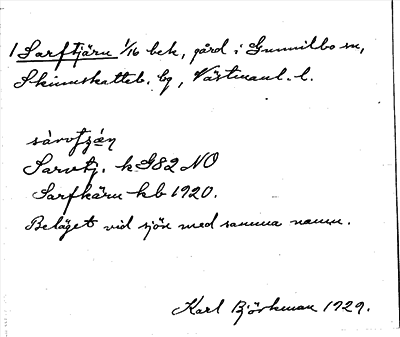 1 Sarftjärn 1/16 bek, gård i Gunnilbo sn,
Skinnskatteb. bg, Västmanl. l.
sàrvtjǽn
Sarvtj. k G82 NO
Sarfkärn kb 1920.
Beläget vid sjön med samma namn.
Karl Björkman 1929.